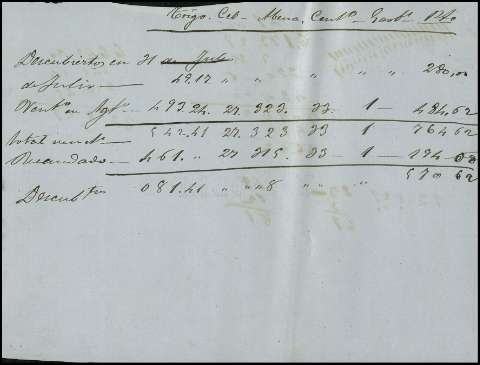 Trigo. Ceb. Abena. Cent.º Garb.s Pta
Descubiertos en 31 de Jul
de Julio — 49.17 " " " " " 280,00
Vent.s en Agt.º 493.24. 27. 323. 33 — 1 — 484.62
total vend. 542.41 27. 323 33 1 764 62
Recaudado — 461. " 27 315. 33 — 1 — 194.00
Descub.tos 081.41 " " " 8 " " " 570 62